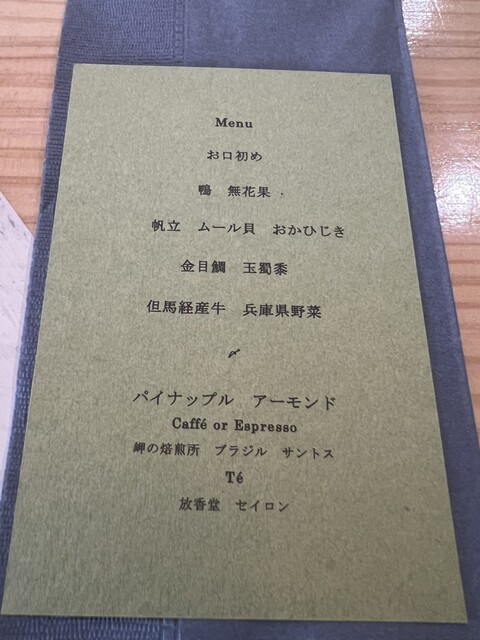 Menu
お口初め
鴨　無花果
帆立　ムール貝　おかひじき
金目鯛　玉蜀黍
但馬経産牛　兵庫県野菜
〆
パイナップル　アーモンド
Caffé or Espresso
岬の焙煎所　ブラジル　サントス
Té
放香堂　セイロン